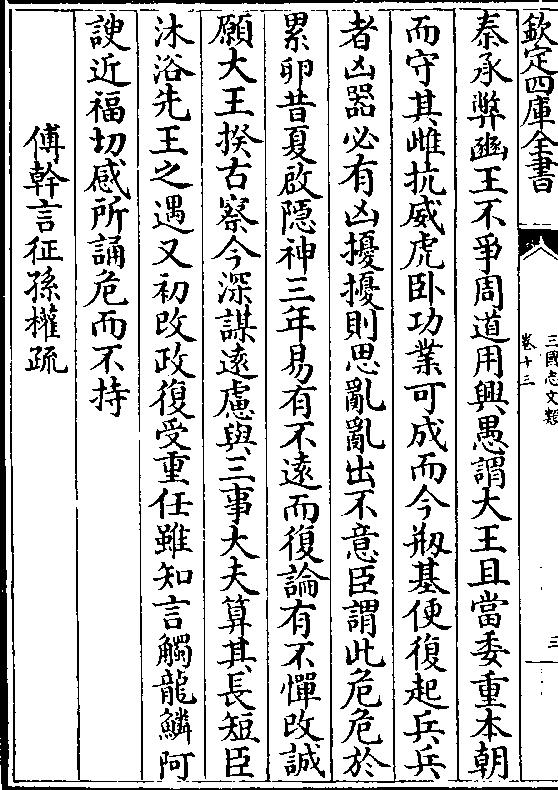 欽定四庫全書
三國志文類
卷十三
三
秦承弊幽王不爭周道用興愚謂大王且當委重本朝
而守其雌抗威虎卧功業可成而今剏基便復起兵兵
者凶器必有凶擾擾則思亂亂出不意臣謂此危危於
累卵昔夏啟隱神三年易有不遠而復論有不憚改誠
願大王揆古察今深謀遠慮與三事大夫算其長短臣
沐浴先王之遇又初改政復受重任雖知言觸龍鱗阿
諛近福切感所誦危而不持
傅幹言征孫權疏